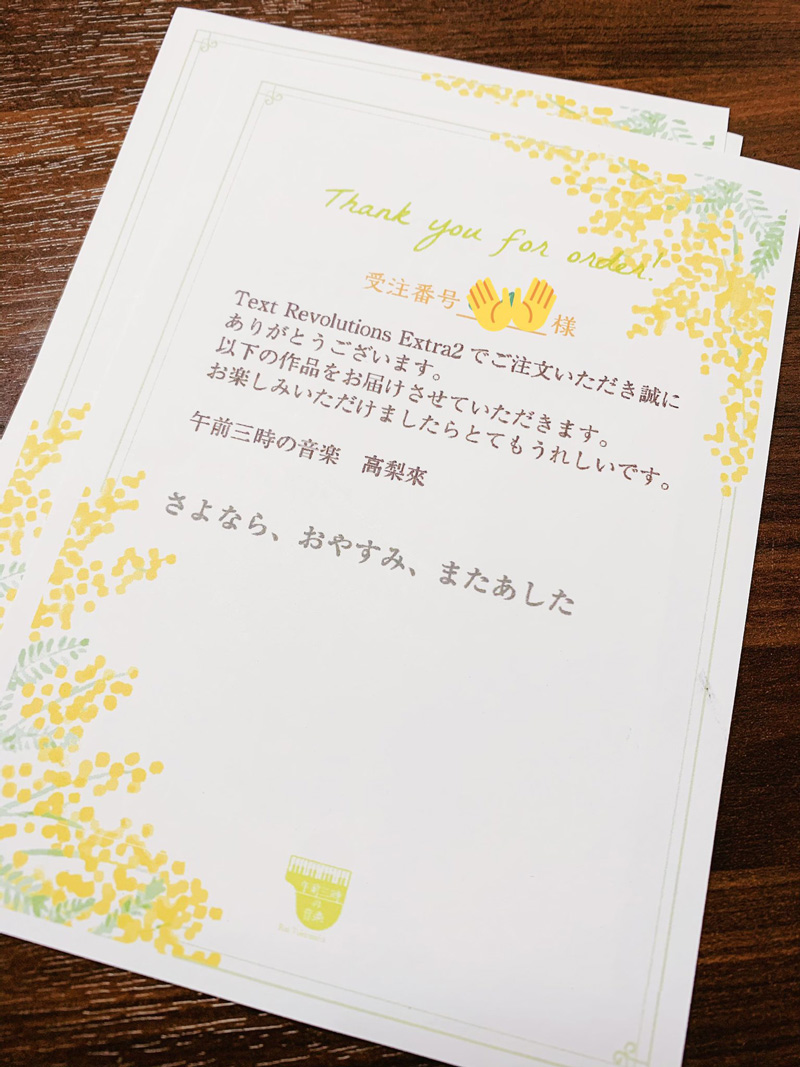 Thank you for order!
受注番号 様
Text Revolutions Extra2でご注文いただき誠に
ありがとうございます。
以下の作品をお届けさせていただきます。
お楽しみいただけましたらとてもうれしいです。
午前三時の音楽 高梨來
さよなら、おやすみ、またあした
午前三時
の
音楽